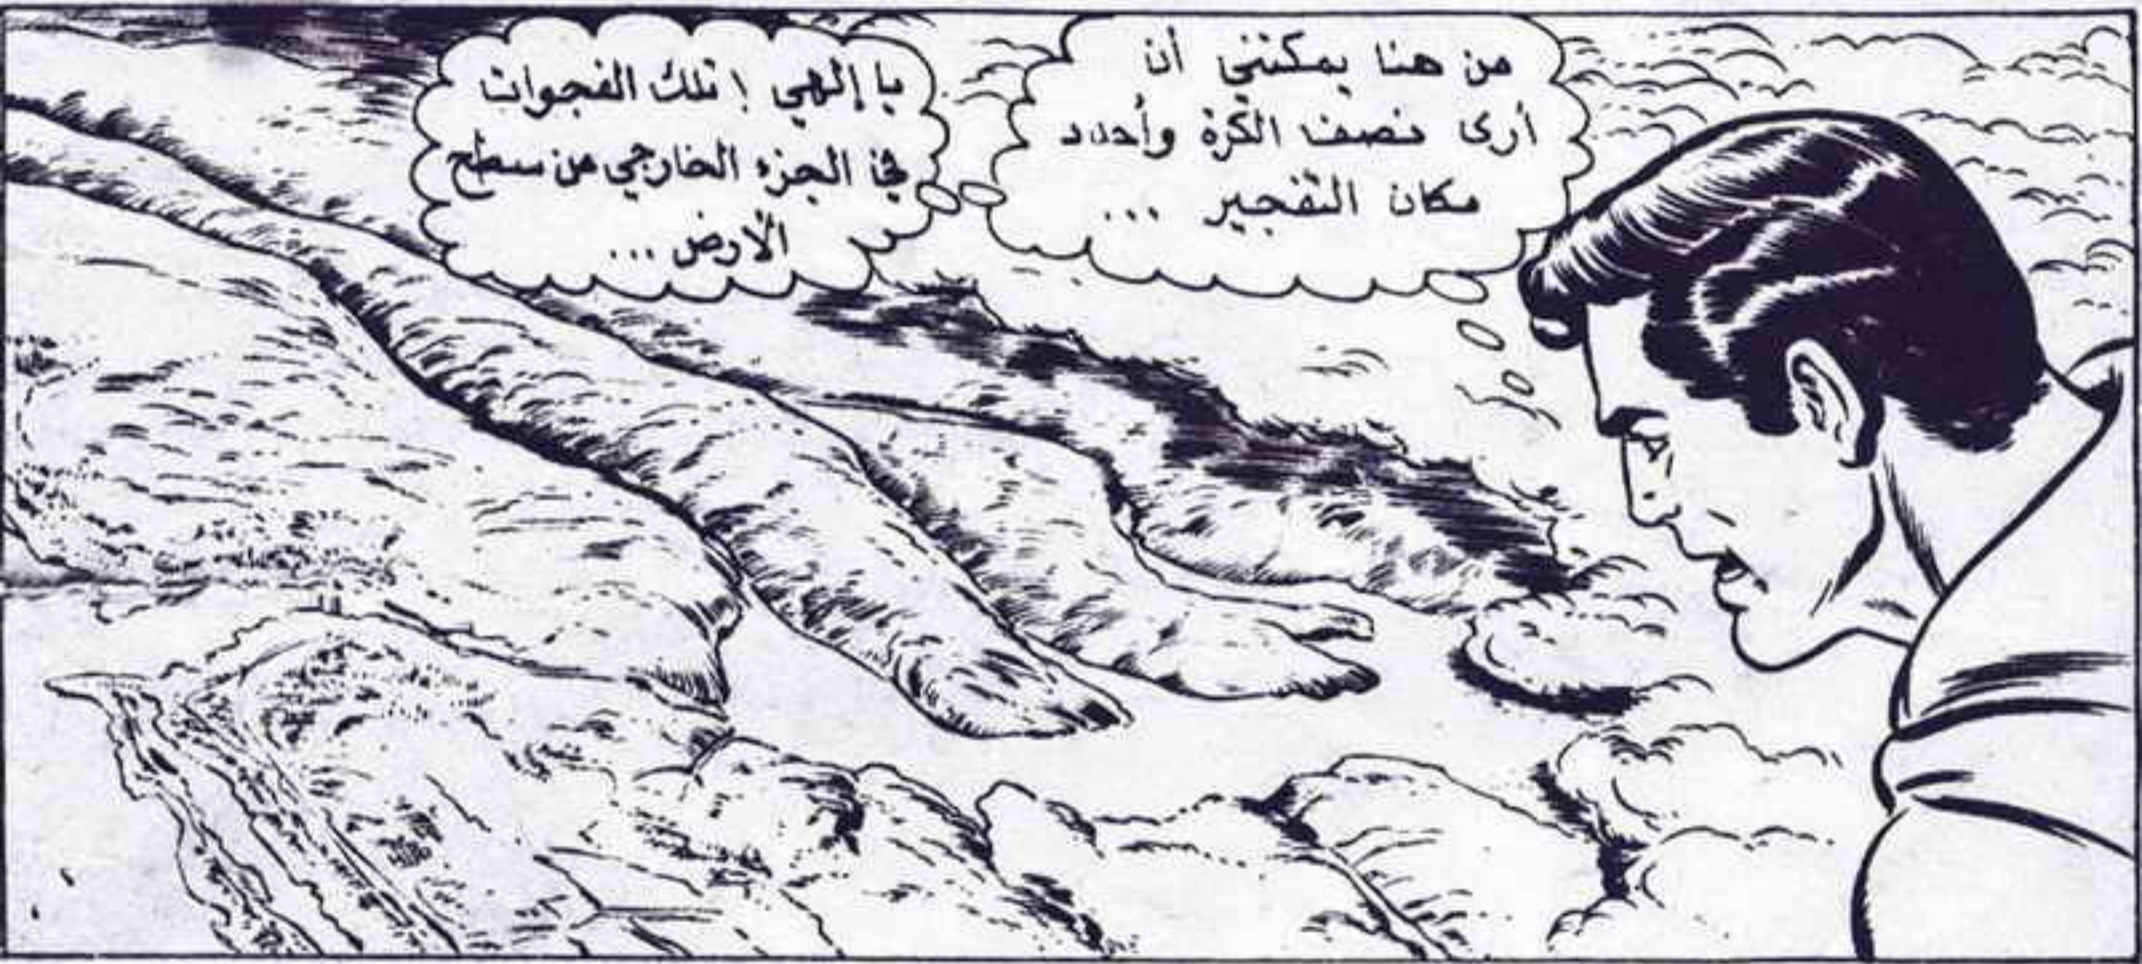 من هنا يمكنني أن
أرى نصف الكرة وأحدد
مكان التفجير ...
يا إلهي ! تلك الفجوات
في الجزء الخارجي من سطح
الأرض ...